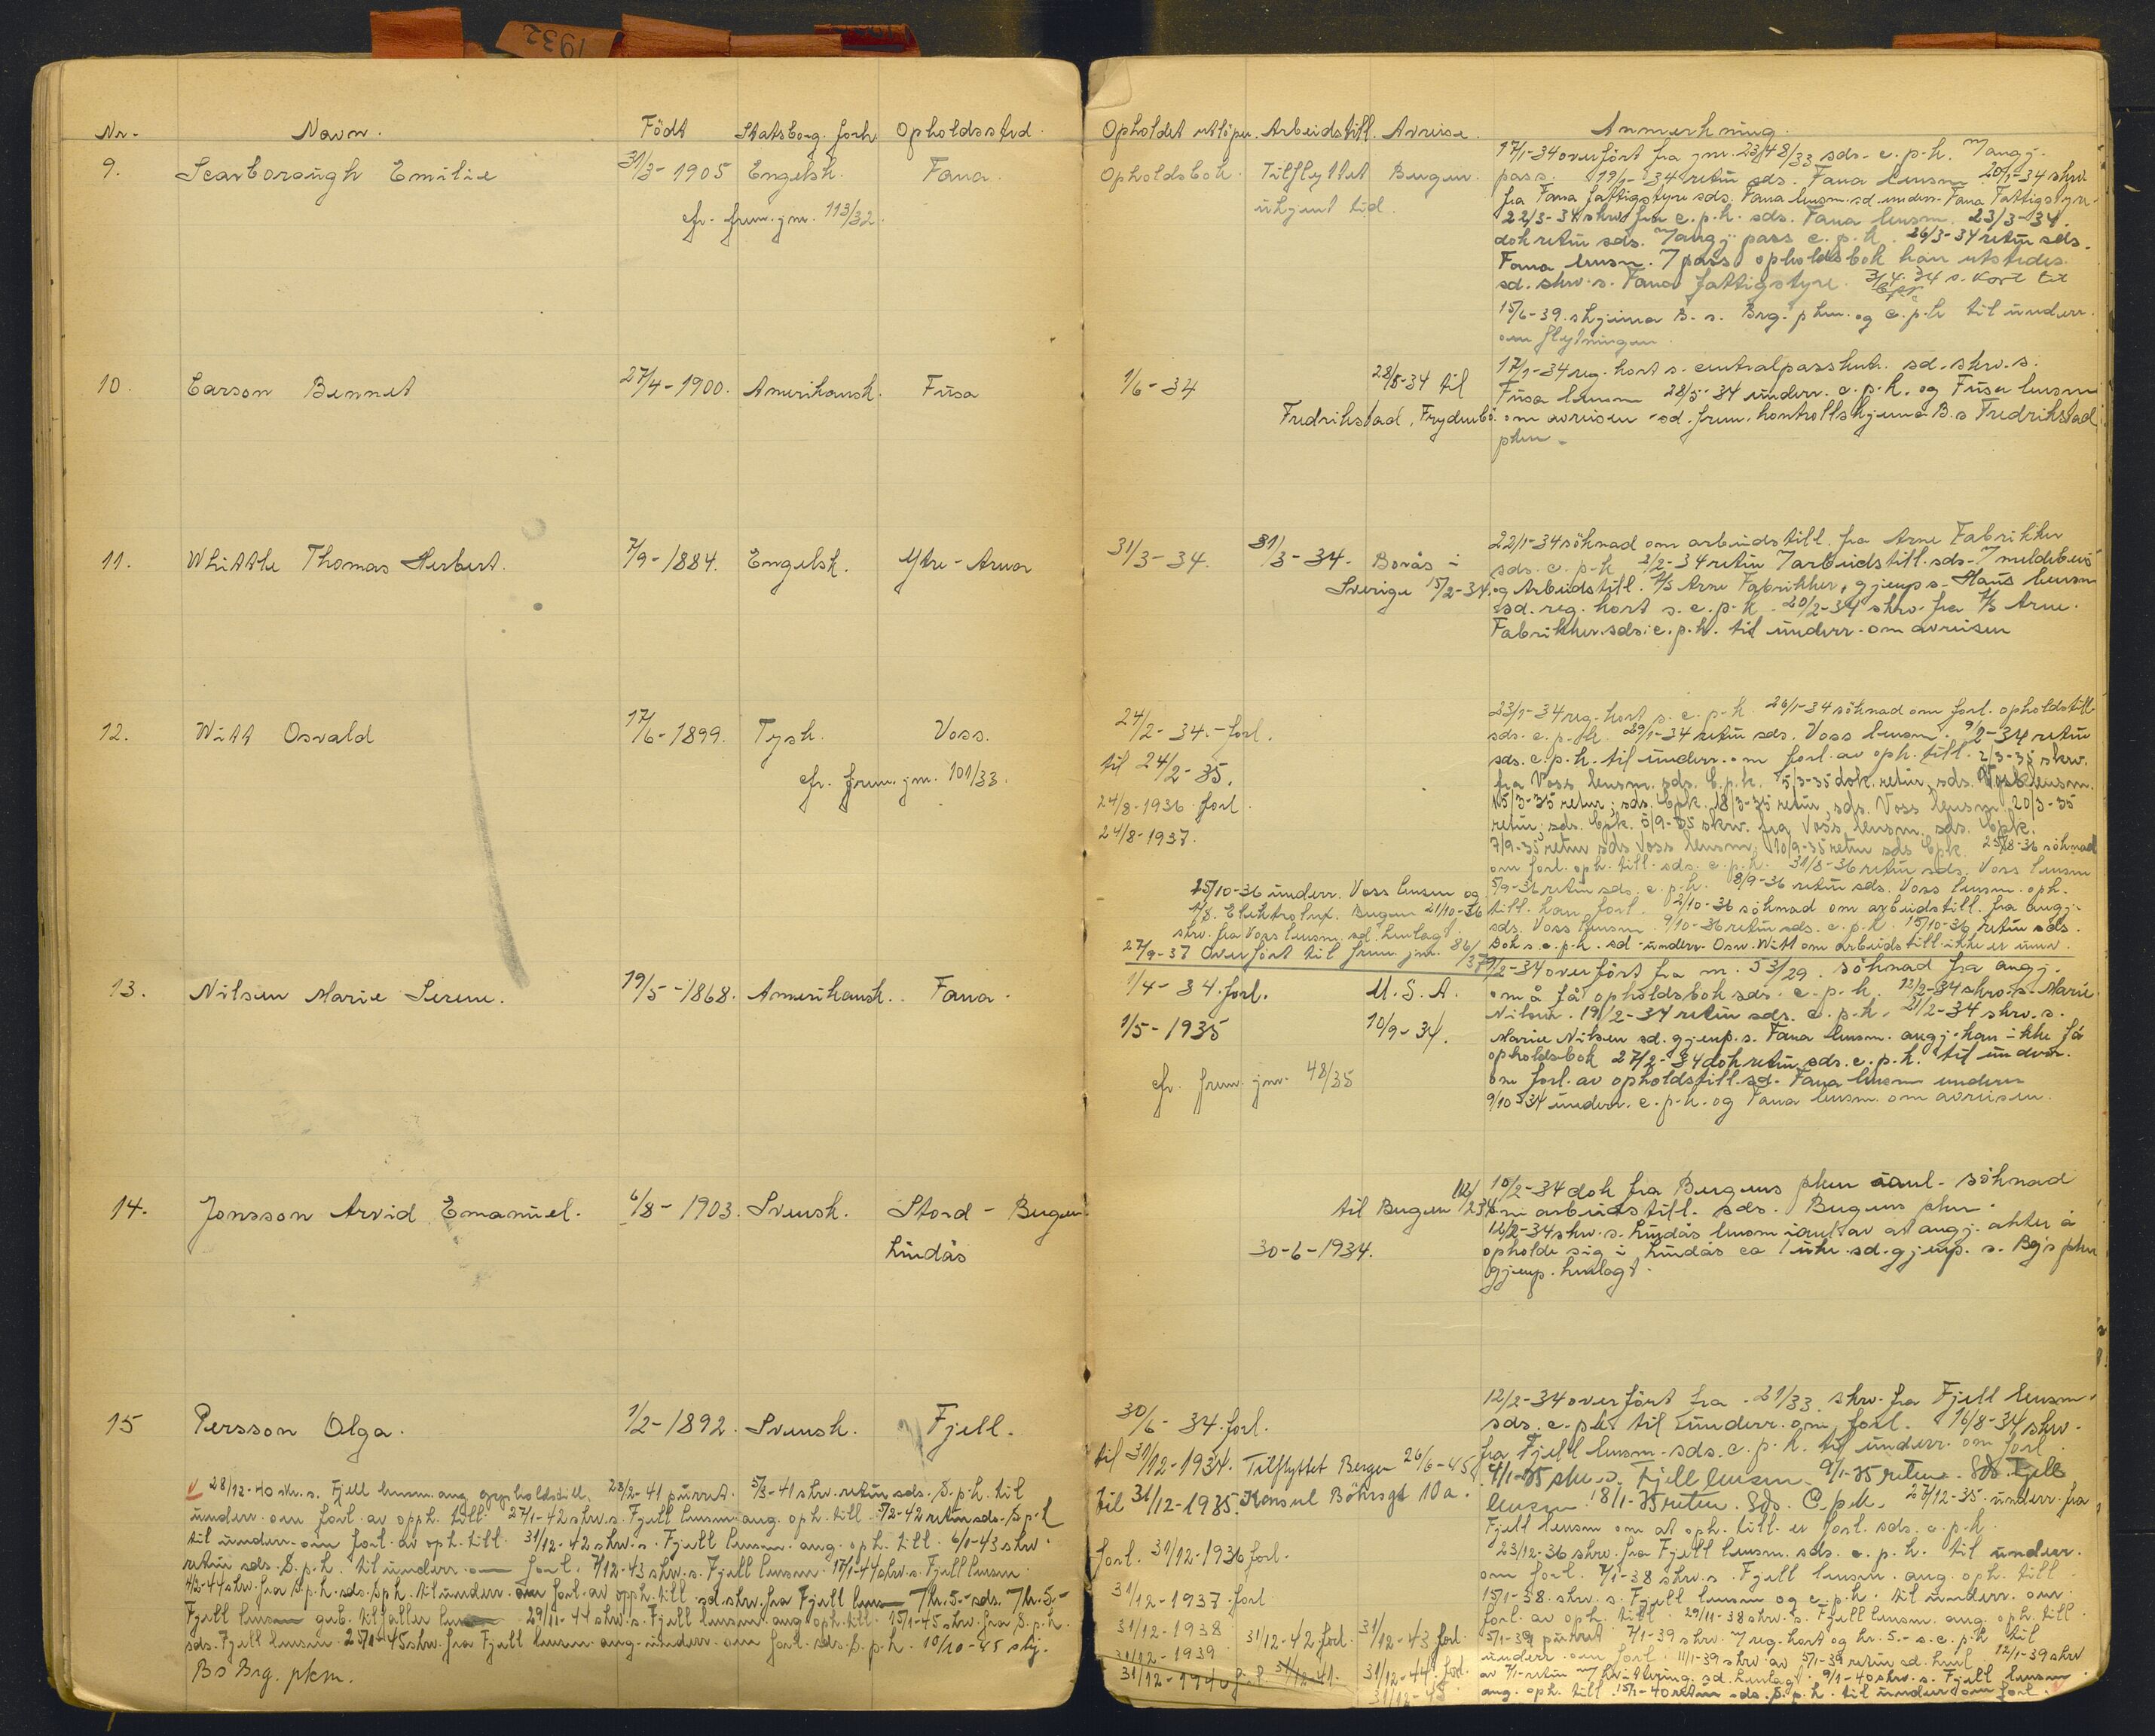 1932
Nr. Navn. Født Statsborg. forh. Opholdssted.
9. Scarborough Emilie 31/3-1905 Engelsk. Fana.
cfr. frem. jnr. 113/32.
10. Carson Bennet 27/4-1900. Amerikansk. Fusa
11. Whittle Thomas Herbert. 7/9-1884. Engelsk. Ytre-Arna
12. Witt Osvald 17/6-1899. Tysk. Voss.
cfr. frem. jnr. 101/33.
13. Nilsen Marie Serene. 19/5-1868. Amerikansk. Fana.
14. Jonsson Arvid Emanuel. 6/8-1903. Svensk. Stord - Bergen
Lindås
15 Persson Olga. 1/2-1892. Svensk. Fjell.
28/12-40 skr. s. Fjell lensm. ang. oppholdstill. 28/2-41 purret. 5/3-41 skrv. retur sds. S.p.k. til
underr. om forl. av opph. till. 27/1-42 skrv. s. Fjell lensm. ang. oph. till. 5/2-42 retur sds. S.p.k
til underr. om forl. av oph. till. 31/12-42 skrv. s. Fjell lensm. ang. oph. till. 6/1-43 skrv.
retur sds. S.p.k. til underr. om forl. 7/12-43 skrv. s. Fjell lensm. 17/1-44 skrv. s. Fjell lensm.
skrv. fra S.p.k. sds. S.p.k. til underr. om forl. av opph. till. sd. skrv. fra Fjell lensm 7 kr. 5.- sds. 7 kr. 5-
Fjell lensm geb. tilfaller 29/11-44 skrv. s. Fjell lensm. ang. oph. till. 15/1-45 skrv. fra S.p.k.
sds. Fjell lensm. 25/1-45 skrv. fra Fjell lensm. ang. underr. om forl. sds. S.p.k. 10/10-45 skj.
B s Brg. pkm.
Opholdet utløper. Arbeidstill. Avreise. Anmerkning.
Opholdsbok. Tilflyttet Bergen.
ukjent tid
17/1-34 overført fra jnr. 23/48/33 sds. c.p.k. 7 angj.
pass. 19/1-34 retur sds. Fana lensm. 20/3-34 skrv
fra Fana fattigstyre sds. Fana lensm. sd. underr. Fana Fattigstyre.
22/3-34 skrv. fra c.p.k. sds. Fana lensm. 23/3-34.
dok retur sds. 7 angj. pass c.p.k. 26/3-34 retur sds.
Fana lensm. 7 pass opholdsbok kan utstedes.
sd. skrv. s. Fana fattigstyre. 3/4-34 s. kort til
15/6-39. skjema B. s. Brg. pkm. og c.p.k til underr.
om flytningen.
1/6-34 28/5-34 til
Fredrikstad, Frydenbø.
17/1-34 reg. kort s. centralpasskntr. sd. skrv. s.
Fusa lensm 28/5-34 underr. c.p.k. og Fusa lensm
om avreisen - sd. frem. kontrollskjema B. s Fredrikstad
pkm.
31/3-34. 31/3-34. Borås i
Sverige 15/2-34.
22/1-34 søknad om arbeidstill. fra Arne Fabrikker
sds. c.p.k 2/2-34 retur 7 arbeidstill. sds. 7 meldebevis
og Arbeidstill. A/S Arne Fabrikker, gjenp s. Haus lensm
sd. reg. kort s. c.p.k. 20/2-34 skrv. fra A/S Arne.
Fabrikker. sds. c.p.k. til underr. om avreisen
24/2-34. - forl.
til 24/2-35.
24/8-1936 forl.
24/8-1937.
23/1-34 reg. kort s. c.p.k. 26/1-34 søknad om forl. opholdstill
sds. c.p.k. 29/1-34 retur sds. Voss lensm. 9/2-34 retur
sds. c.p.k. til underr. om forl. av oph. till. 2/3-35 skrv.
fra Voss lensm. sds. C.p.k. 5/3-35 dok. retur, sds. Voss lensm.
15/3-35 retur, sds. Cpk. 18/3-35 retur, sds. Voss lensm. 20/3-35
retur, sds. Cpk. 5/9-35 skrv. fra Voss lensm. sds. Cpk.
7/9-35 retur sds Voss lensm. 10/9-35 retur sds Cpk. 25/8-36 søknad
om forl. oph. till. sds. c.p.k. 31/8-36 retur sds. Voss lensm
5/9-36 retur sds. c.p.k. 8/9-36 retur sds. Voss lensm. oph.
till. kan forl. 2/10-36 søknad om arbeidstill. fra angj.
sds. Voss lensm. 9/10-36 retur sds. c.p.k. 15/10-36 retur sds.
dok s. c.p.k. sd. underr. Osw. Witt om arbeidstill. ikke er
25/10-36 underr. Voss lensm og
A/S. Elektrolux. Bergen 21/10-36
skrv. fra Voss lensm. sd. henlagt.
27/9-37 Overført til frem. jnr. 86/37
1/4-34. forl. U.S.A.
1/5-1935 10/9-34.
cfr. frem. jnr. 48/35
9/2-34 overført fra nr. 53/29. søknad fra angj.
om å få opholdsbok sds. c.p.k. 12/2-34 skrv. s. Marie
Nilsen. 19/2-34 retur sds. c.p.k. 21/2-34 skrv. s.
Marie Nilsen sd. gjenp. s. Fana lensm. angj. kan ikke få
opholdsbok 27/2-34 dok retur sds. c.p.k. til underr.
om forl. av opholdstill. sd. Fana lensm underr
9/10-34 underr. c.p.k. og Fana lensm. om avreisen.
til Bergen 12/2 34
30-6-1934.
10/2-34 dok fra Bergens pkm søknad
om arbeidstill. sds. Bergens pkm.
12/2-34 skrv. s. Lindås lensm av at angj. akter å
opholde sig i Lindås ca 1 uke. sd. gjenp. s. Bg's pkm
gjenp. henlagt.
30/6-34. forl.
til 31/12-1934. Tilflyttet Bergen 26/6-45.
til 31/12-1935. Konsul Böhrsgt 10a.
forl. 31/12-1936 forl.
31/12-1937 forl
31/12-1938 31/12-42 forl. 31/12-43 forl.
31/12-1939
31/12-1940 forl 31/12-41. 31/12-44. forl.
31/12-45
12/2-34 overført fra 21/33 skrv. fra Fjell lensm.
sds. c.p.k. til underr. om forl. 16/8-34 skrv.
fra Fjell lensm. sds. c.p.k. til underr. om forl.
4/1-35 skr. s. Fjell lensm. 9/1-35 retur. Sds. Fjell
lensm. 18/1-35 retur. Sds. C.p.k. 27/12-35. underr. fra
Fjell lensm om at oph. till. er forl. sds. c.p.k.
23/12-36 skrv. fra Fjell lensm. sds. c.p.k. til underr.
om forl. 7/1-38 skrv. s. Fjell lensm. ang. oph. till
15/1-38. skrv. s. Fjell lensm og c.p.k. til underr. om
forl. av oph. till. 29/11-38 skrv. s. Fjell lensm. ang. oph. till.
5/1-39 purret 7/1-39 skrv. 7 reg. kort og kr. 5.- s. c.p.k til
underr. om forl. 11/1-39 skrv av 5/1-39 retur sd. henl. 12/1-39 skrv
av 7/1-retur m/ kvittering. sd. henlagt. 9/1-40 skrv. s. Fjell lensm
ang. oph. till. 15/1-40 retur sds. S.p.k. til underr om forl.